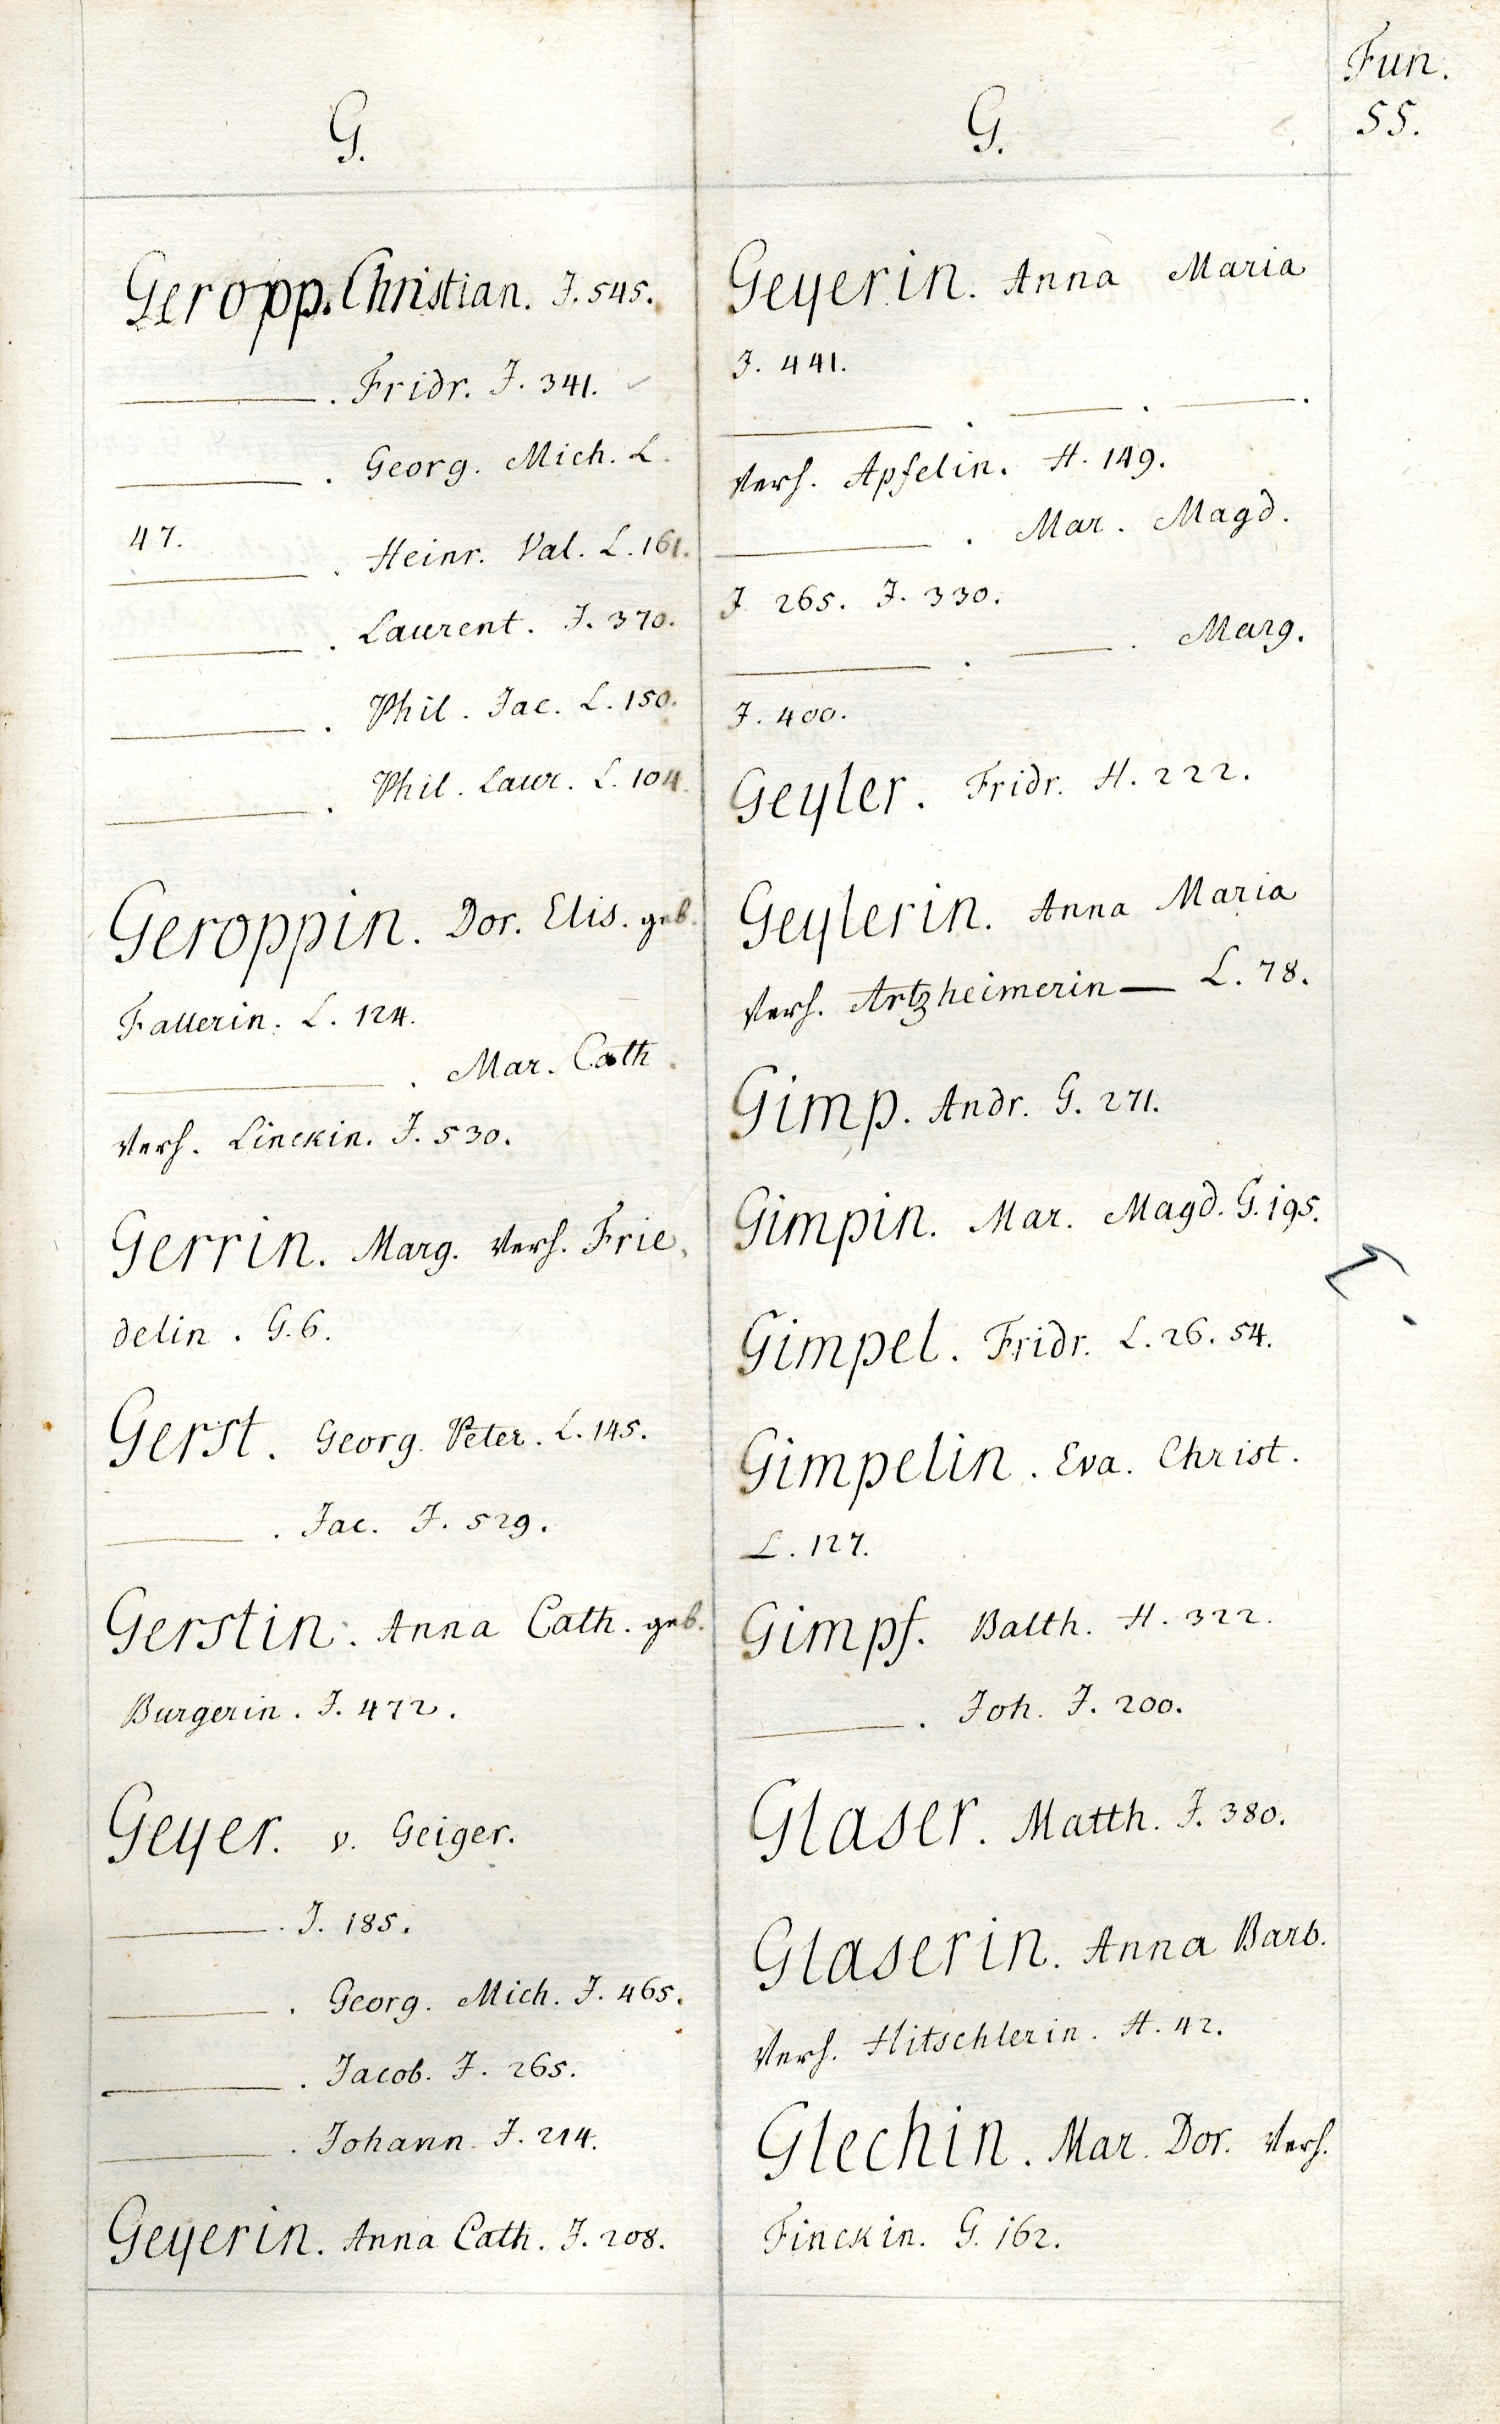 Fun.
55.
G.
Geropp. Christian. J. 545.
———. Fridr. J. 341.
———. Georg. Mich. L.
47.
———. Heinr. Val. L. 161.
———. Laurent. J. 370.
———. Phil. Jac. L. 150.
———. Phil. Laur. L. 104.
Geroppin. Dor. Elis. geb.
Fallerin. L. 124.
———. Mar. Cath.
Verh. Linckin. J. 530.
Gerrin. Marg. Verh. Frie
delin. G. 6.
Gerst. Georg. Peter. L. 145.
———. Jac. J. 529.
Gerstin. Anna Cath. geb.
Burgerin. J. 472.
Geyer. v. Geiger.
———. J. 185.
———. Georg. Mich. J. 465.
———. Jacob. J. 265.
———. Johann. J. 214.
Geyerin. Anna Cath. J. 208.
G.
Geyerin. Anna Maria
J. 441.
———. ———. ———.
Verh. Apfelin. H. 149.
———. Mar. Magd.
J 265. J. 330.
———. ———. Marg.
J. 400.
Geyler. Fridr. H. 222.
Geylerin. Anna Maria
Verh. Artzheimerin — L. 78.
Gimp. Andr. G. 271.
Gimpin. Mar. Magd. G. 195.
Gimpel. Fridr. L. 26. 54.
Gimpelin. Eva. Christ.
L. 127.
Gimpf. Balth. H. 322.
———. Joh. J. 200.
Glaser. Matth. J. 380.
Glaserin. Anna Barb.
Verh. Hitschlerin. H. 42.
Glechin. Mar. Dor. Verh.
Finckin. G. 162.